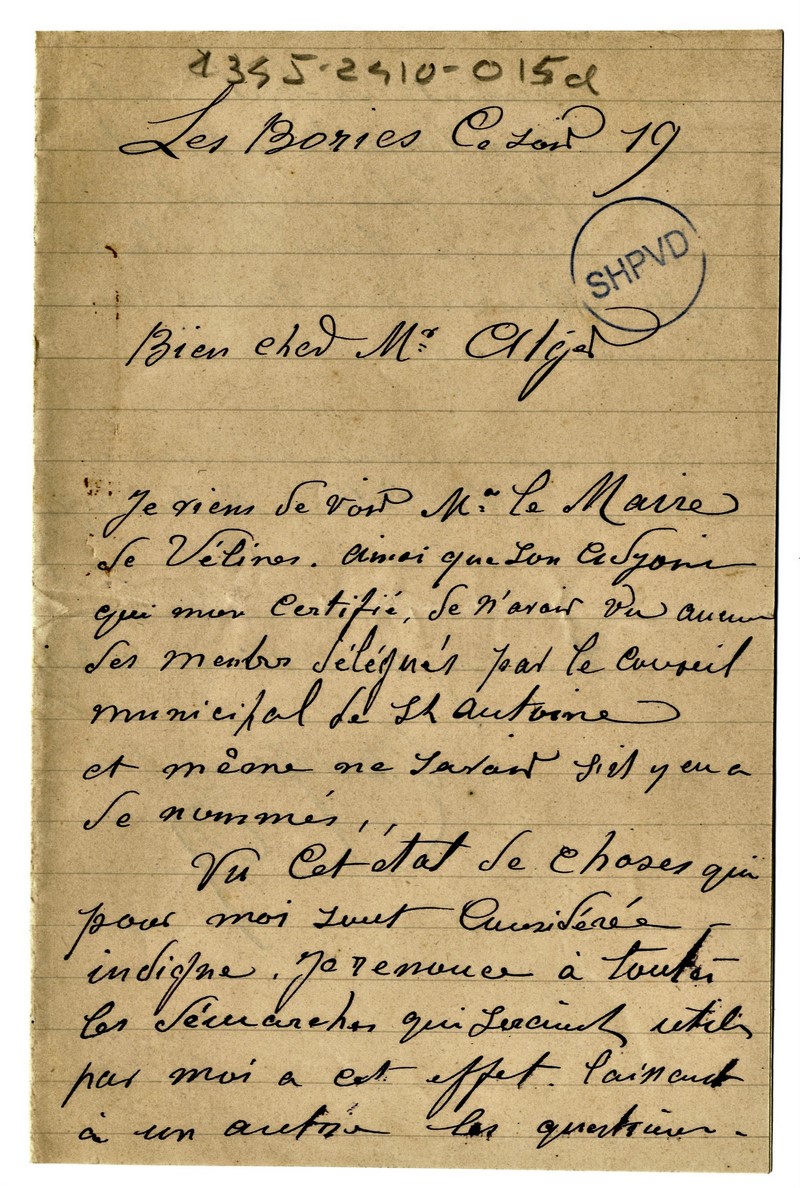 1345-2410-015d
Les Bories Ce soir 19
SHPVD
Bien cher Mr Alger
Je viens de voir Mr le Maire
de Vélines. ainsi que son Adjoint
qui mon Certifié, de n'avoir vu aucun
des membres délégués par le Conseil
municipal de St Antoine
et même ne savoir s'il y en a
de nommés,,
Vu Cet état de Choses qui
pour moi sont Considérée
indigne. Je renonce à toutes
les démarches qui seraient utiles
par moi a cet effet. laissant
à un autre les questions-